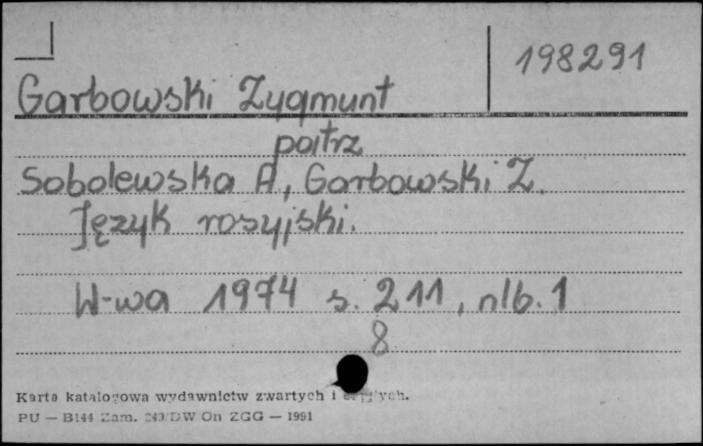 198291
Garbowski Zygmunt
patrz
Sobolewska A., Garbowski Z.
Język rosyjski.
W-wa 1974 s. 211, nlb. 1
8
Karta katalogowa wydawnictw zwartych i ciągłych.
PU — B144 Zam. 243/DW On ZGG — 1991